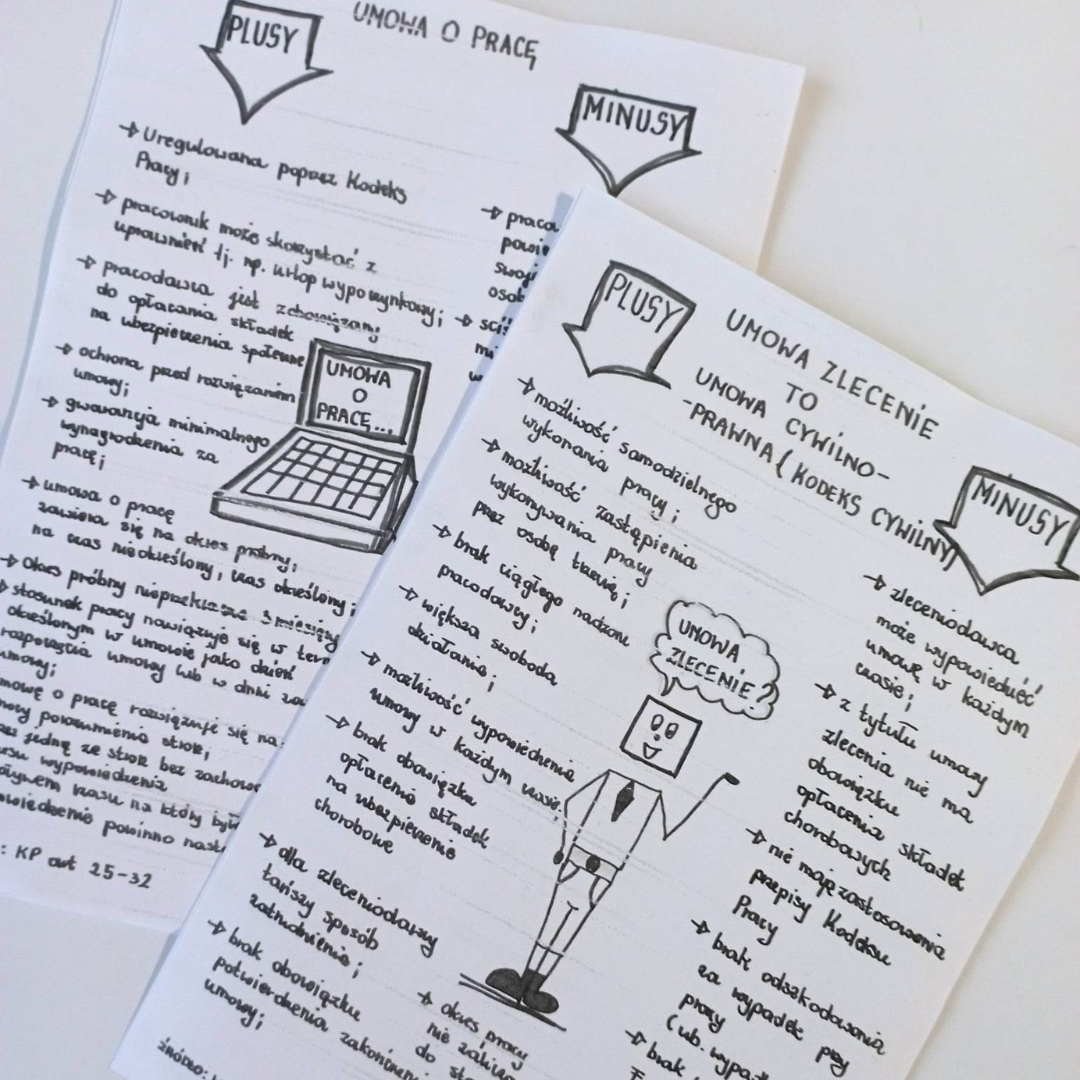 UMOWA O PRACĘ
PLUSY
MINUSY
→ Uregulowana poprzez Kodeks
Pracy;
→ pracownik może skorzystać z
uprawnień tj. np. urlop wypoczynkowy;
→ pracodawca jest zobowiązany
do opłacania składek
na ubezpieczenia społeczne
→ ochrona przed rozwiązaniem
umowy;
→ gwarancja minimalnego
wynagrodzenia za
pracę;
→ umowa o pracę
zawiera się na okres próbny,
na czas nieokreślony, czas określony;
→ Okres próbny nieprzekracza 3 miesięcy
stosunek pracy nawiązuje się w
określonym w umowie jako dzień
rozpoczęcia umowy lub w dniu
umowy;
umowę o pracę rozwiązuje się na:
porozumienia stron;
jedną ze stron bez
wypowiedzenia
czasu na który
powinno
: KP art 25-32
UMOWA
O
PRACĘ...
→ praca
→
PLUSY
UMOWA ZLECENIE
TO
UMOWA CYWILNO-
-PRAWNA (KODEKS CYWILNY)
MINUSY
→ możliwość samodzielnego
wykonania pracy;
→ możliwość zastąpienia
wykonywania pracy
przez osobę trzecią;
→ brak ciągłego nadzoru
pracodawcy;
→ większa swoboda
działania;
→ możliwość wypowiedzenia
umowy w każdym czasie.
→ brak obowiązku
opłacenia składek
na ubezpieczenie
chorobowe
→ dla zleceniodawcy
tańszy sposób
zatrudnienia;
→ brak obowiązku
potwierdzenia zakończenia
umowy;
→ okres pracy
nie
do
ŹRÓDŁO:
UMOWA
ZLECENIE?
→ zleceniodawca
może wypowiedzieć
umowę w każdym
czasie;
→ z tytułu umowy
zlecenia nie ma
obowiązku
opłacenia składek
chorobowych
→ nie mają zastosowania
przepisy Kodeksu
Pracy
→ brak odszkodowania
za wypadek przy
pracy
→ brak